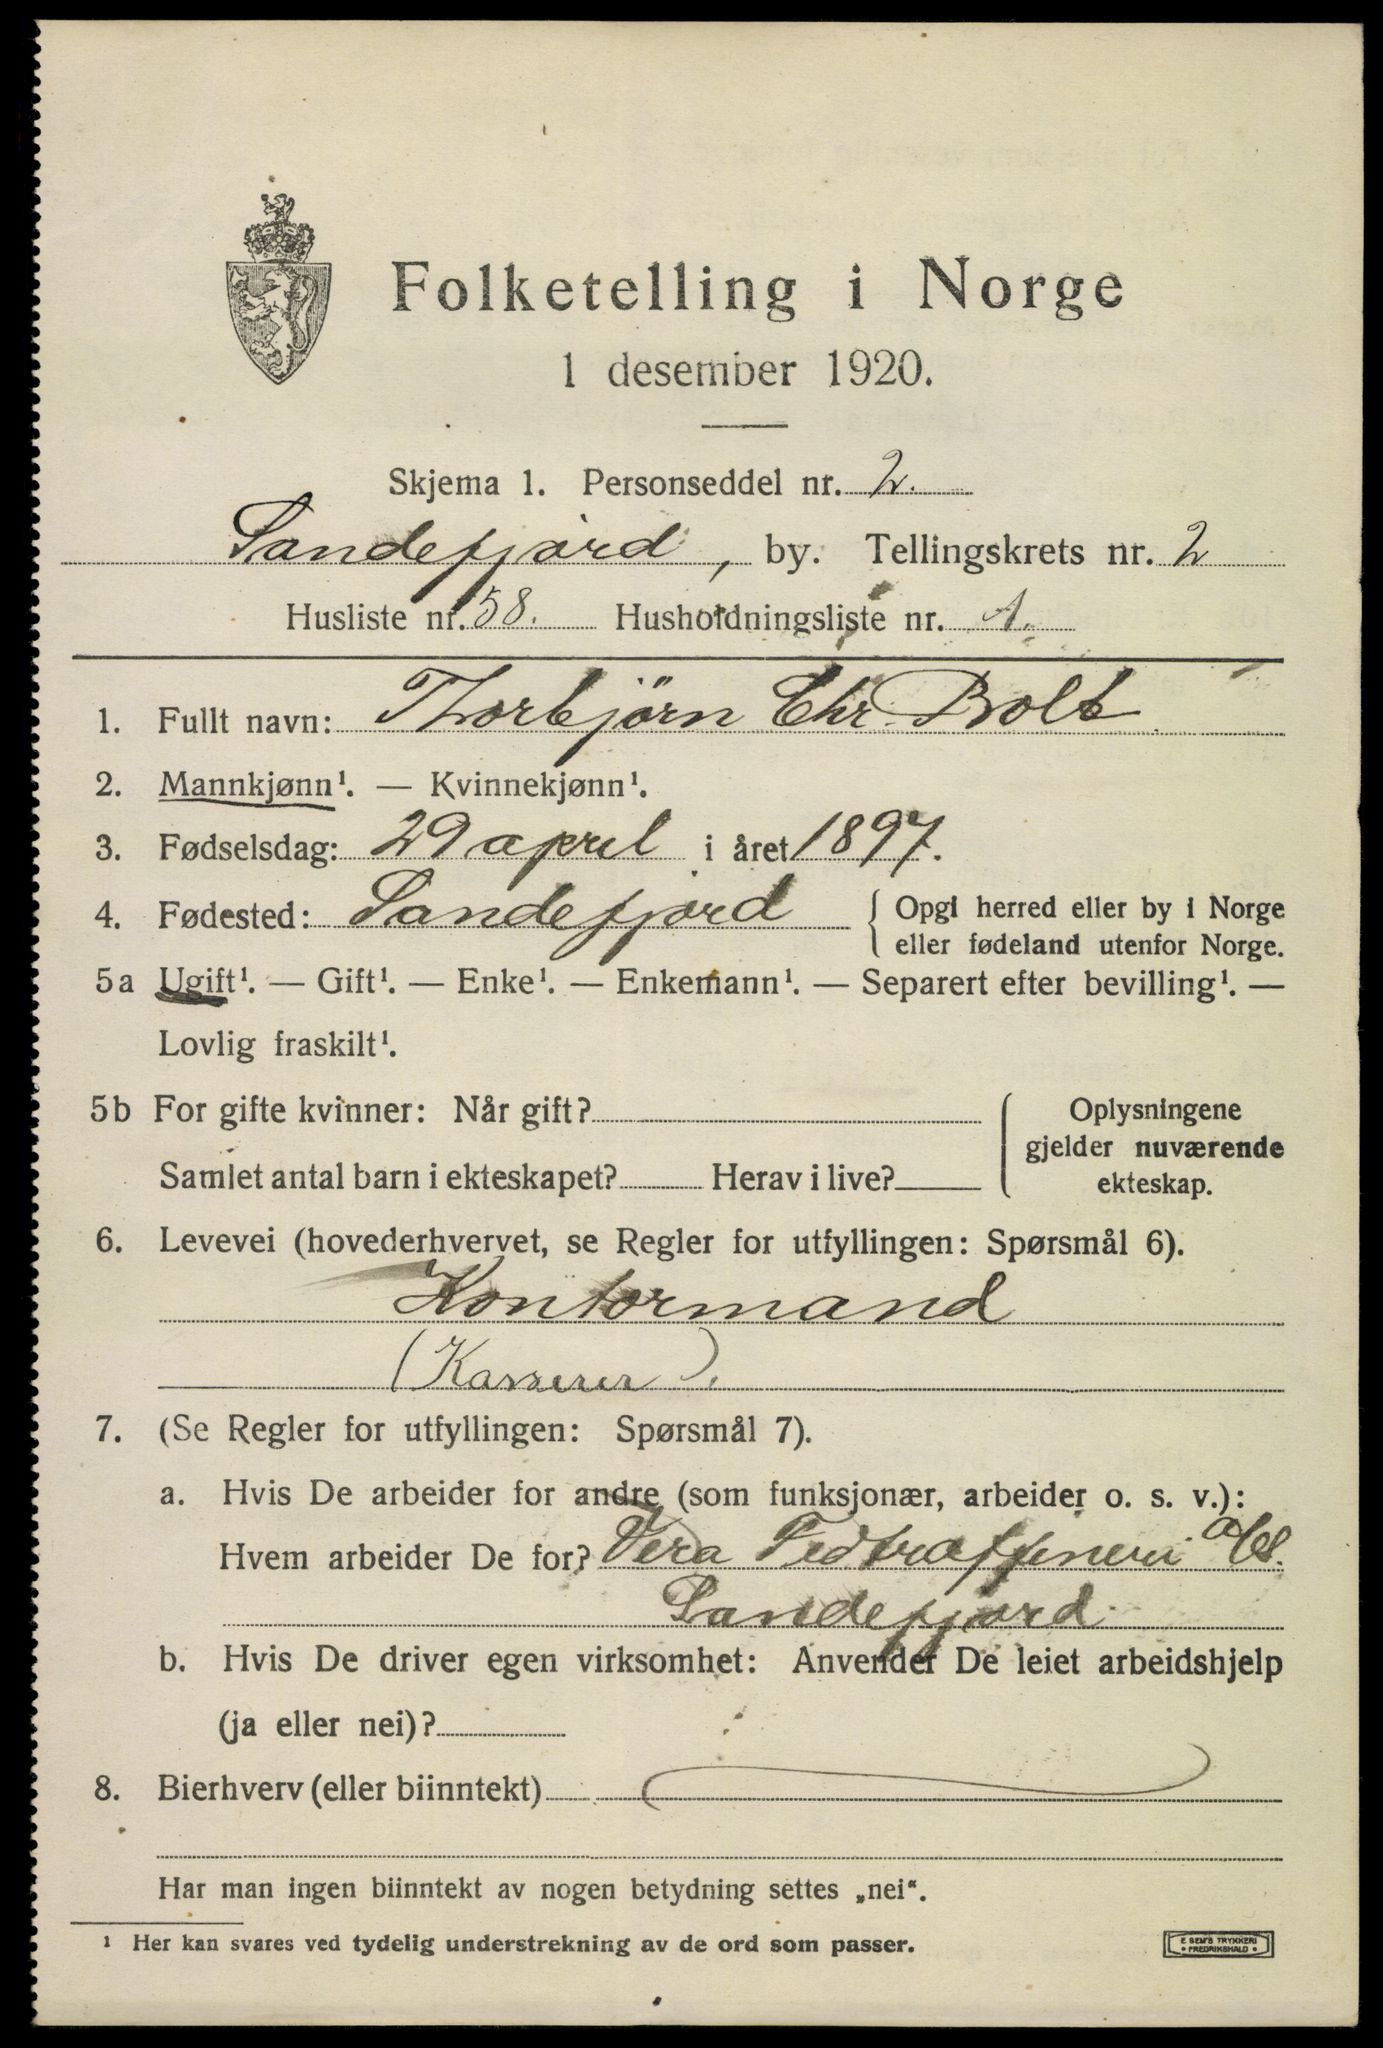 Folketelling i Norge
1 desember 1920.
Skjema 1. Personseddel nr. 2.
Sandefjord, by. Tellingskrets nr. 2
Husliste nr. 58. Husholdningsliste nr. 1.
1. Fullt navn: Thorbjörn Chr. Bolt
2. Mannkjønn¹. — Kvinnekjønn¹.
3. Fødselsdag: 29 april i året 1897.
4. Fødested: Sandefjord { Opgi herred eller by i Norge
eller fødeland utenfor Norge.
5a Ugift¹. — Gift¹. — Enke¹. — Enkemann¹. — Separert efter bevilling¹. —
Lovlig fraskilt¹.
5b For gifte kvinner: Når gift? { Oplysningene
gjelder nuværende
Samlet antal barn i ekteskapet? Herav i live? ekteskap.
6. Levevei (hovederhvervet, se Regler for utfyllingen: Spørsmål 6).
Kontormand
(Kasserer).
7. (Se Regler for utfyllingen: Spørsmål 7).
a. Hvis De arbeider for andre (som funksjonær, arbeider o. s. v.):
Hvem arbeider De for? Vera Fedtraffineri a/s.
Sandefjord.
b. Hvis De driver egen virksomhet: Anvender De leiet arbeidshjelp
(ja eller nei)?
8. Bierhverv (eller biinntekt)
Har man ingen biinntekt av nogen betydning settes „nei“.
¹ Her kan svares ved tydelig understrekning av de ord som passer.
E SEM'S TRYKKERI
• FREDRIKSHALD •